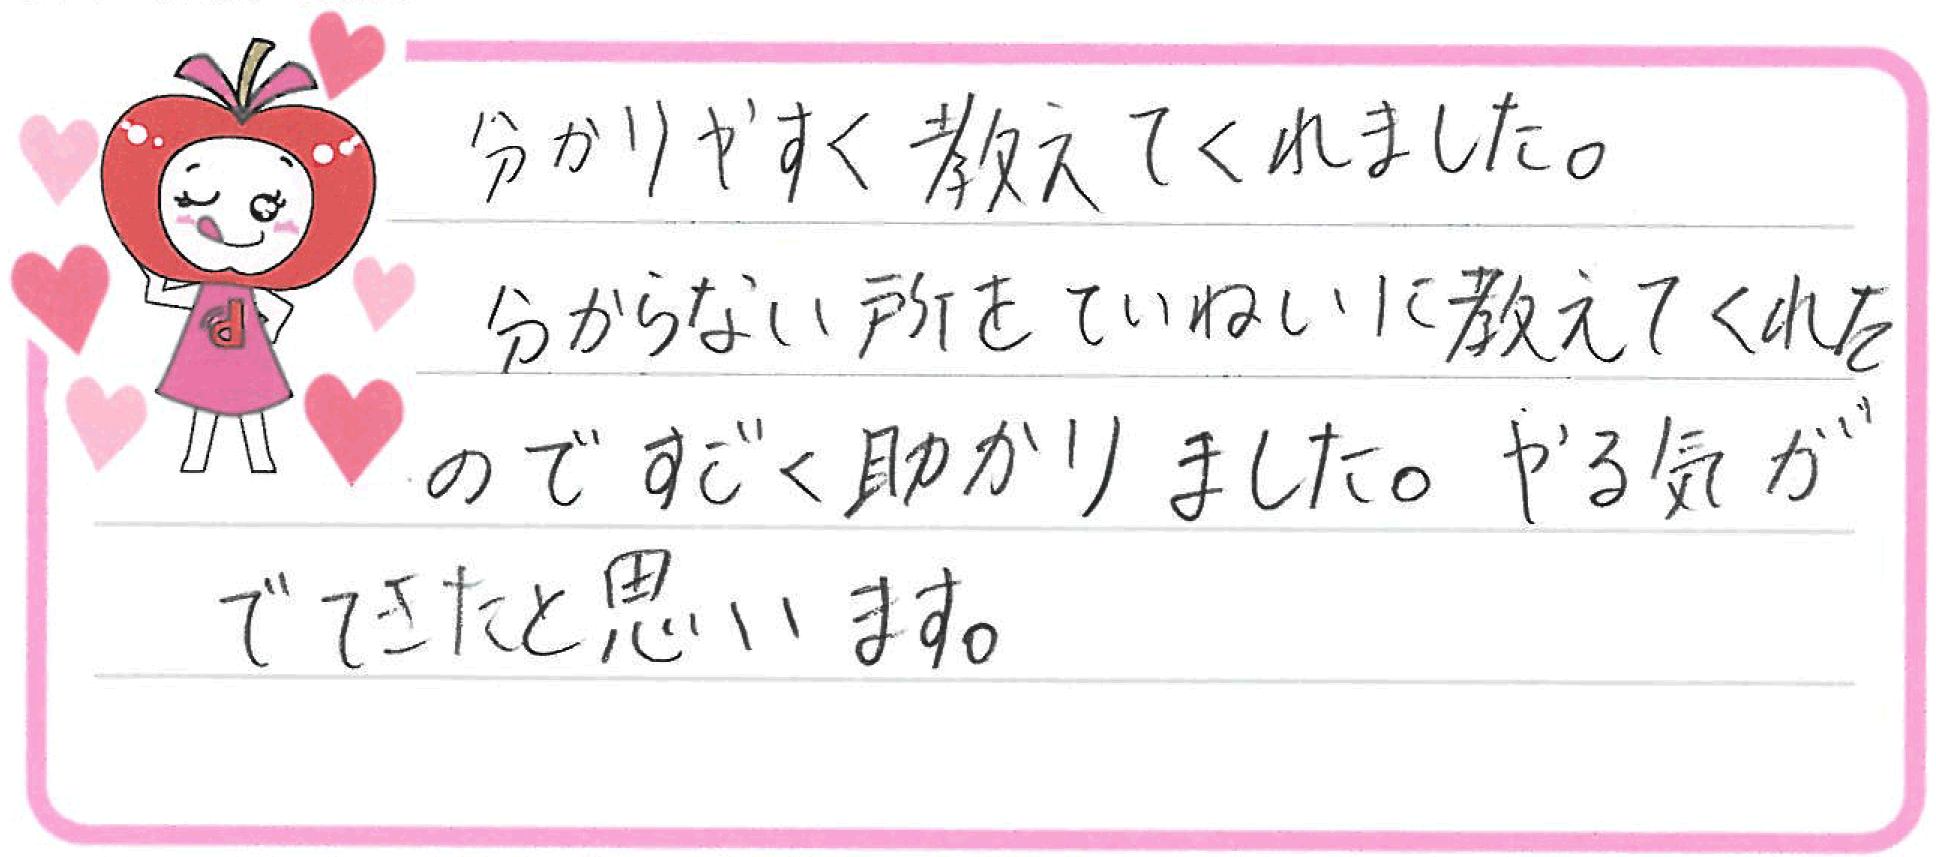 分かりやすく教えてくれました。
分からない所をていねいに教えてくれた
のですごく助かりました。やる気が
でてきたと思います。
d